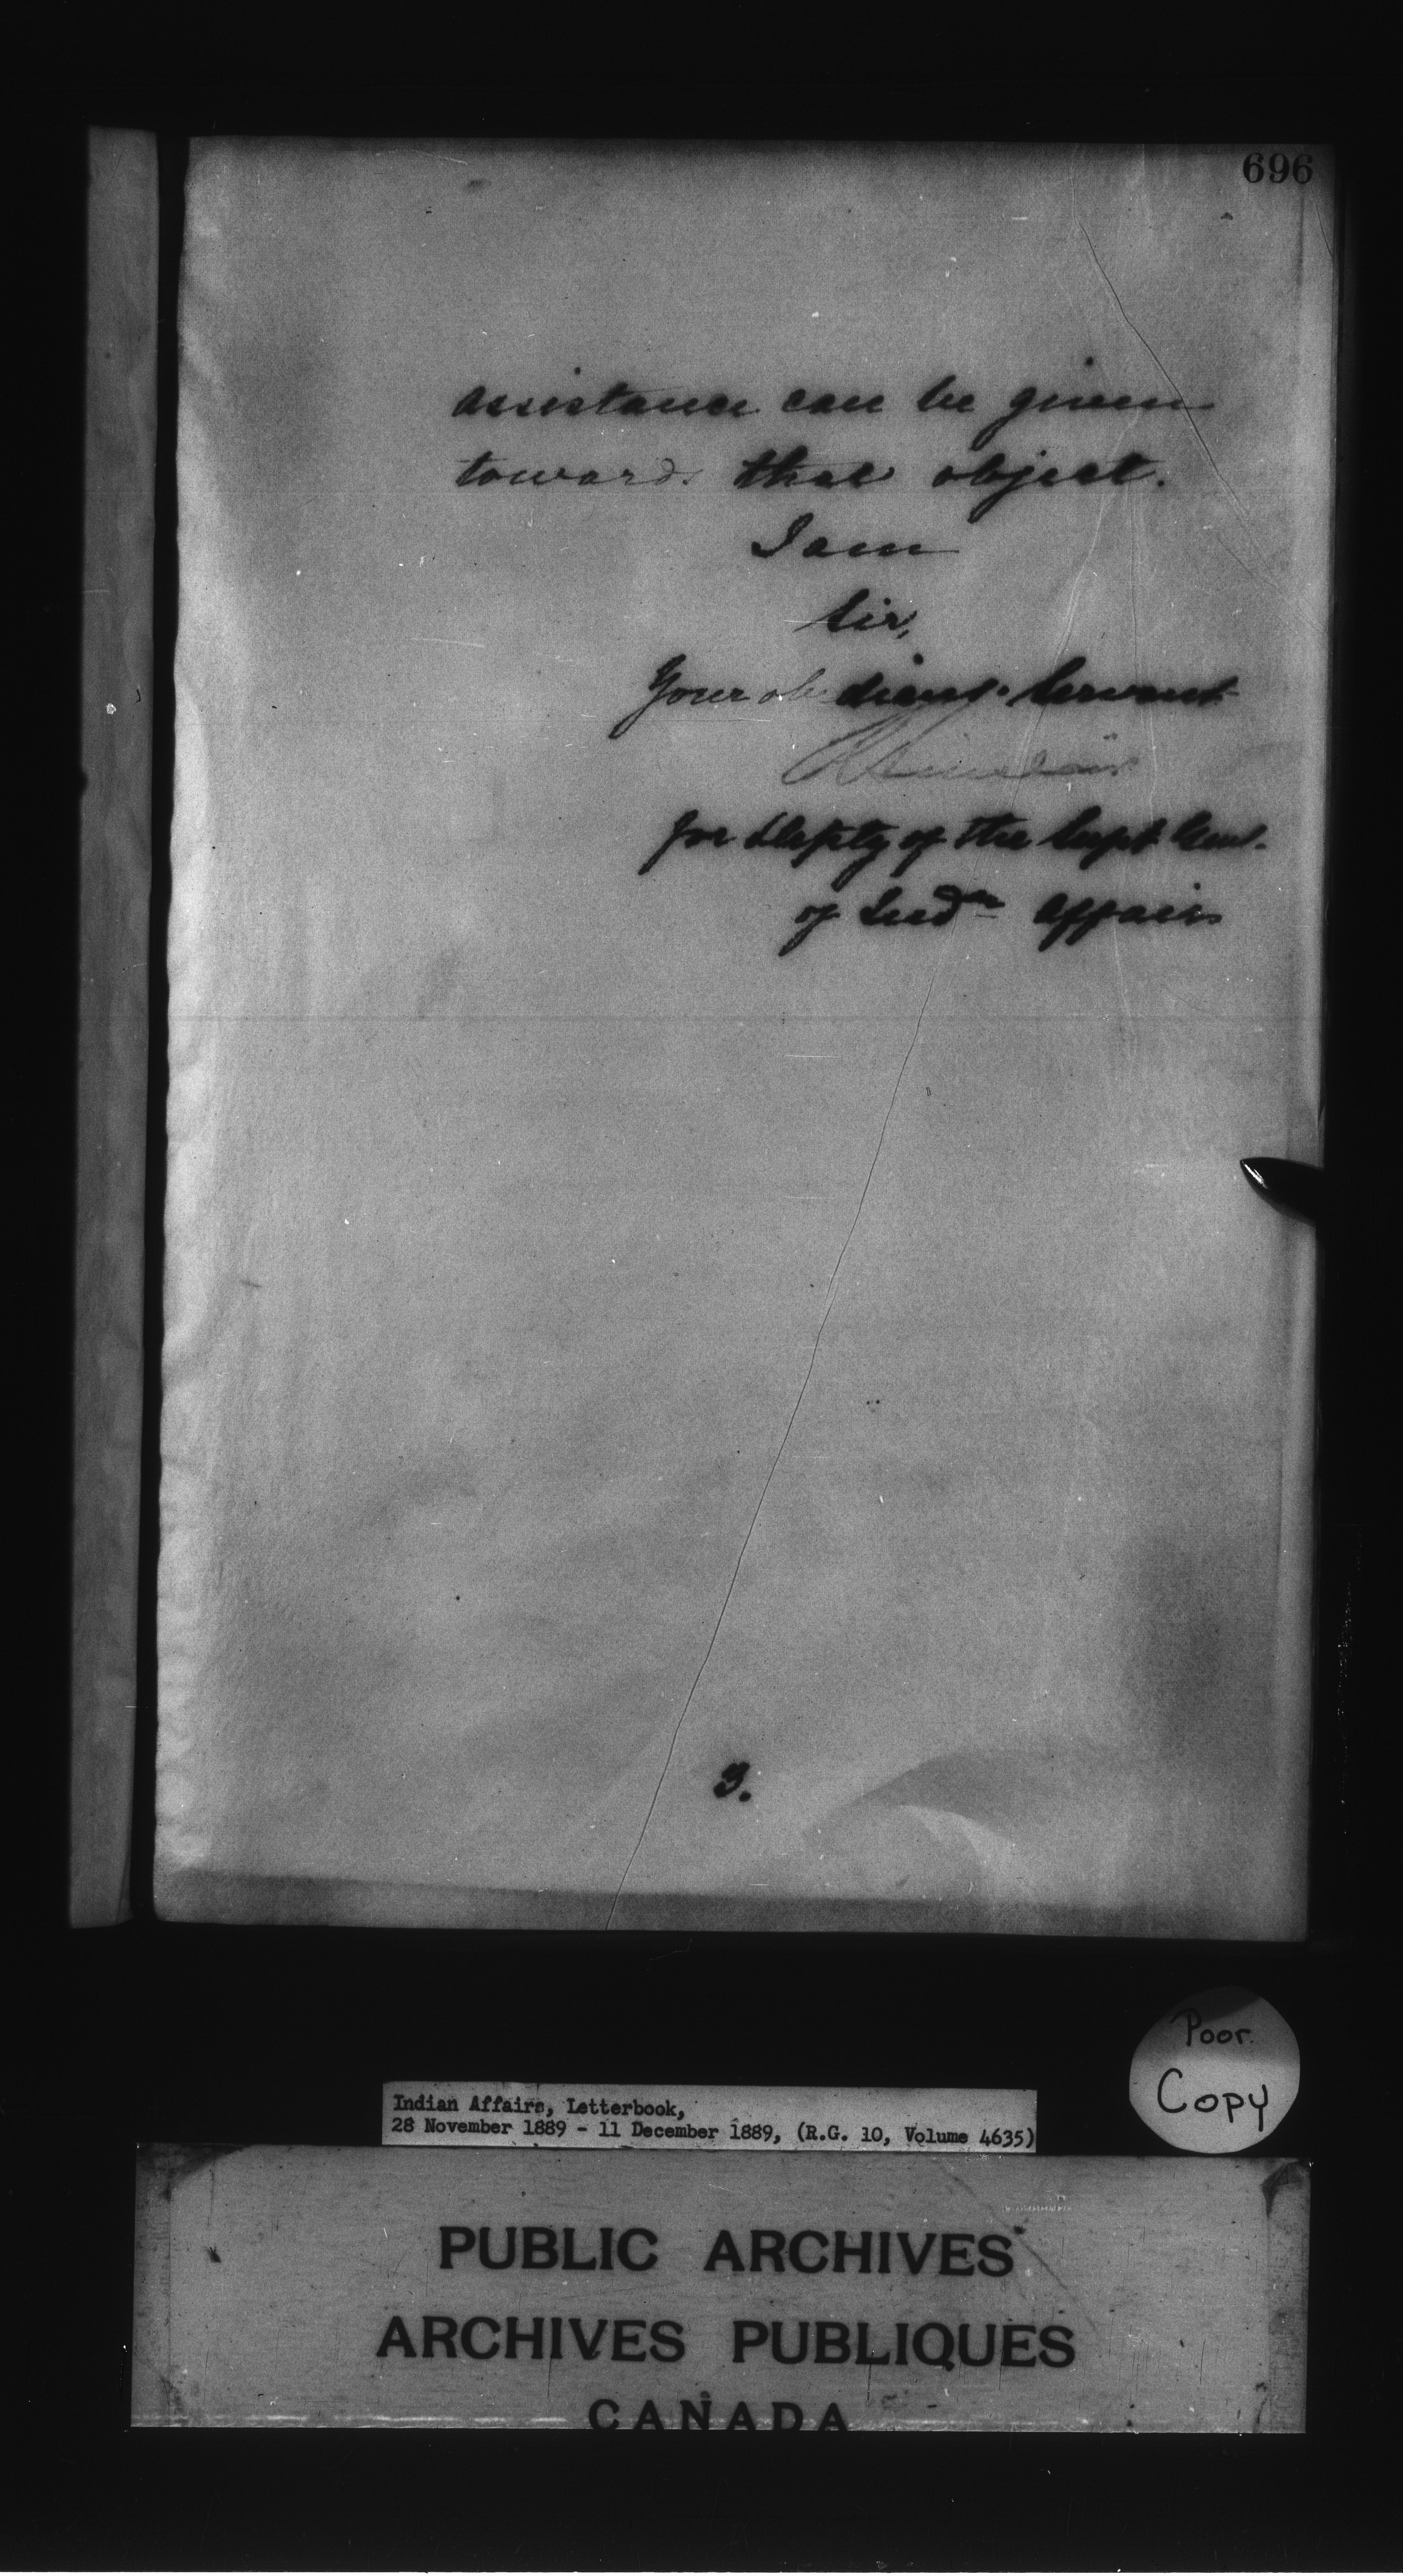 696
assistance can be given
towards that object.
I am
Sir,
Your obedient Servant
R Sinclair
for Depty of the Supt Genl.
of Indn Affairs
J.
Poor
Copy
Indian Affairs, Letterbook,
28 November 1889 - 11 December 1889, (R.G. 10, Volume 4635)
PUBLIC ARCHIVES
ARCHIVES PUBLIQUES
CANADA